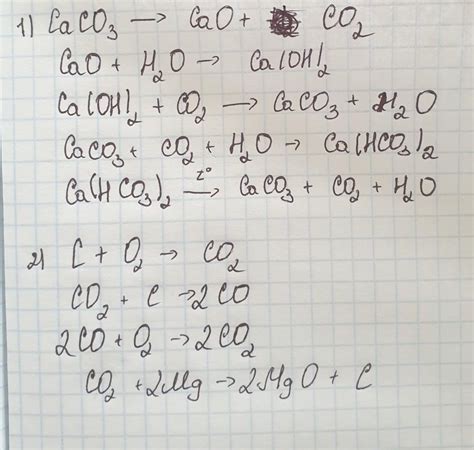 1) CaCO₃ → CaO + CO₂
CaO + H₂O → Ca(OH)₂
Ca(OH)₂ + CO₂ → CaCO₃ + H₂O
CaCO₃ + CO₂ + H₂O → Ca(HCO₃)₂
Ca(HCO₃)₂ →t° CaCO₃ + CO₂ + H₂O
2) C + O₂ → CO₂
CO₂ + C → 2CO
2CO + O₂ → 2CO₂
CO₂ + 2Mg → 2MgO + C